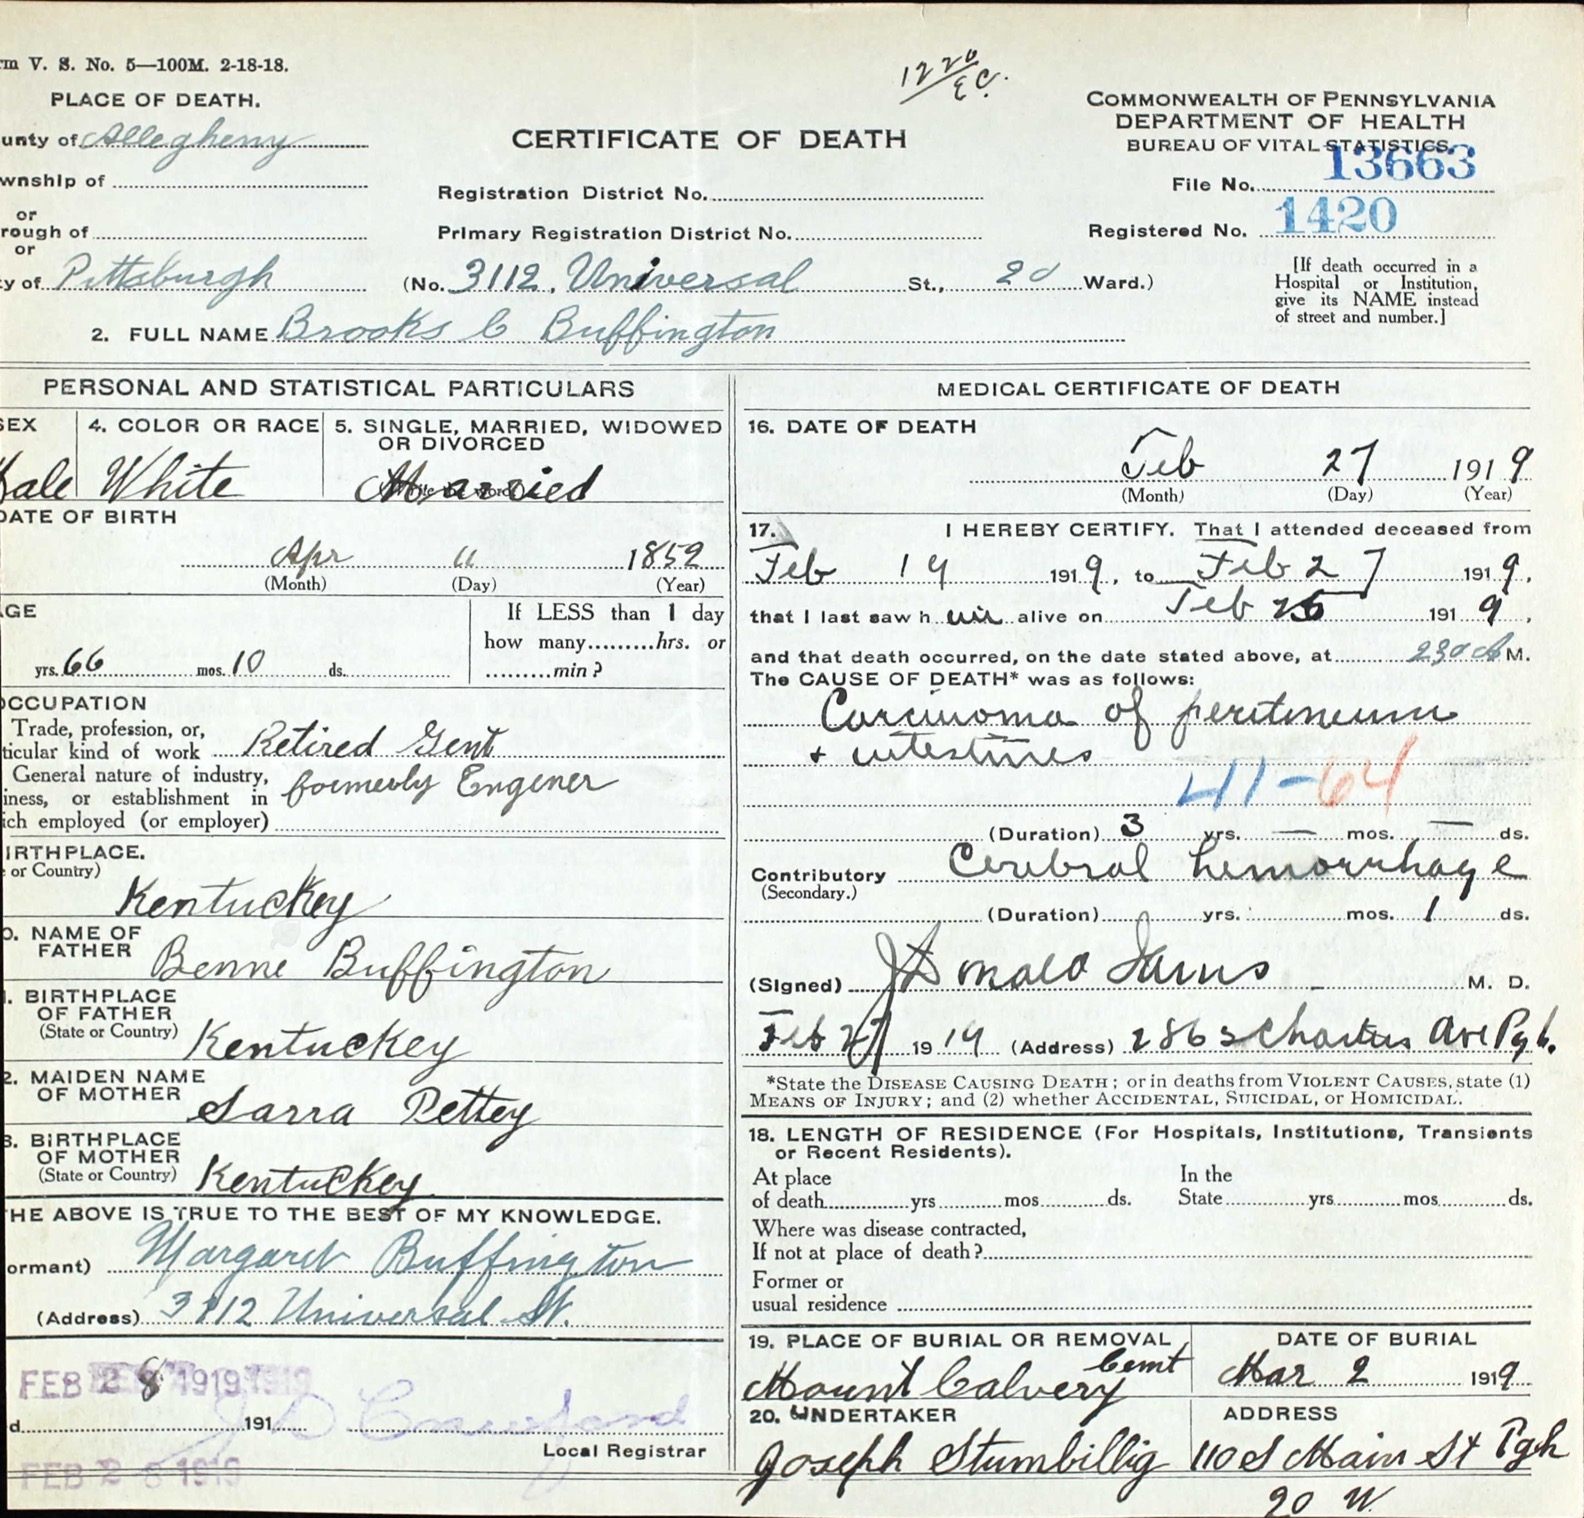 rm V. S. No. 5—100M. 2-18-18.
1220
EC.
PLACE OF DEATH.
unty of Allegheny
wnship of
or
rough of
or
y of Pittsburgh
CERTIFICATE OF DEATH
Registration District No.
Primary Registration District No.
(No. 3112. Universal St., 20 Ward.)
COMMONWEALTH OF PENNSYLVANIA
DEPARTMENT OF HEALTH
BUREAU OF VITAL STATISTICS.
File No. 13663
Registered No. 1420
[If death occurred in a
Hospital or Institution,
give its NAME instead
of street and number.]
2. FULL NAME Brooks C Buffington
PERSONAL AND STATISTICAL PARTICULARS
SEX
ale
4. COLOR OR RACE
White
5. SINGLE, MARRIED, WIDOWED
OR DIVORCED
Married
DATE OF BIRTH
Apr 11 1852
(Month) (Day) (Year)
GE
yrs. 66 mos. 10 ds.
If LESS than 1 day
how many hrs. or
min?
OCCUPATION
Trade, profession, or,
ticular kind of work Retired Gent
General nature of industry,
iness, or establishment in formerly Enginer
ich employed (or employer)
IRTHPLACE.
or Country)
Kentuckey
0. NAME OF
FATHER Benne Buffington
1. BIRTHPLACE
OF FATHER
(State or Country) Kentuckey
2. MAIDEN NAME
OF MOTHER Sarra Pettey
3. BIRTHPLACE
OF MOTHER
(State or Country) Kentuckey
THE ABOVE IS TRUE TO THE BEST OF MY KNOWLEDGE.
ormant) Margaret Buffington
(Address) 3112 Universal St.
FEB 28 1919
d 191
J D Crawford
Local Registrar
FEB 28 1919
MEDICAL CERTIFICATE OF DEATH
16. DATE OF DEATH
Feb 27 1919
(Month) (Day) (Year)
17. I HEREBY CERTIFY. That I attended deceased from
Feb 19 1919, to Feb 27 1919,
that I last saw h im alive on Feb 26 1919,
and that death occurred, on the date stated above, at 230 A M.
The CAUSE OF DEATH* was as follows:
Carcinoma of peritoneum
+ intestines
41-64
(Duration) 3 yrs. — mos. — ds.
Contributory Cerebral hemorrhage
(Secondary.)
(Duration) yrs. mos. 1 ds.
(Signed) J Donald M. D.
Feb 27 1919 (Address) 2863 Chartiers Ave Pgh.
*State the DISEASE CAUSING DEATH; or in deaths from VIOLENT CAUSES, state (1)
MEANS OF INJURY; and (2) whether ACCIDENTAL, SUICIDAL, or HOMICIDAL.
18. LENGTH OF RESIDENCE (For Hospitals, Institutions, Transients
or Recent Residents).
At place
of death yrs mos ds.
In the
State yrs mos ds.
Where was disease contracted,
If not at place of death?
Former or
usual residence
19. PLACE OF BURIAL OR REMOVAL
Mount Calvery Cemt
DATE OF BURIAL
Mar 2 1919
20. UNDERTAKER
Joseph Stumbillig
ADDRESS
110 S Main St Pgh
20 W.